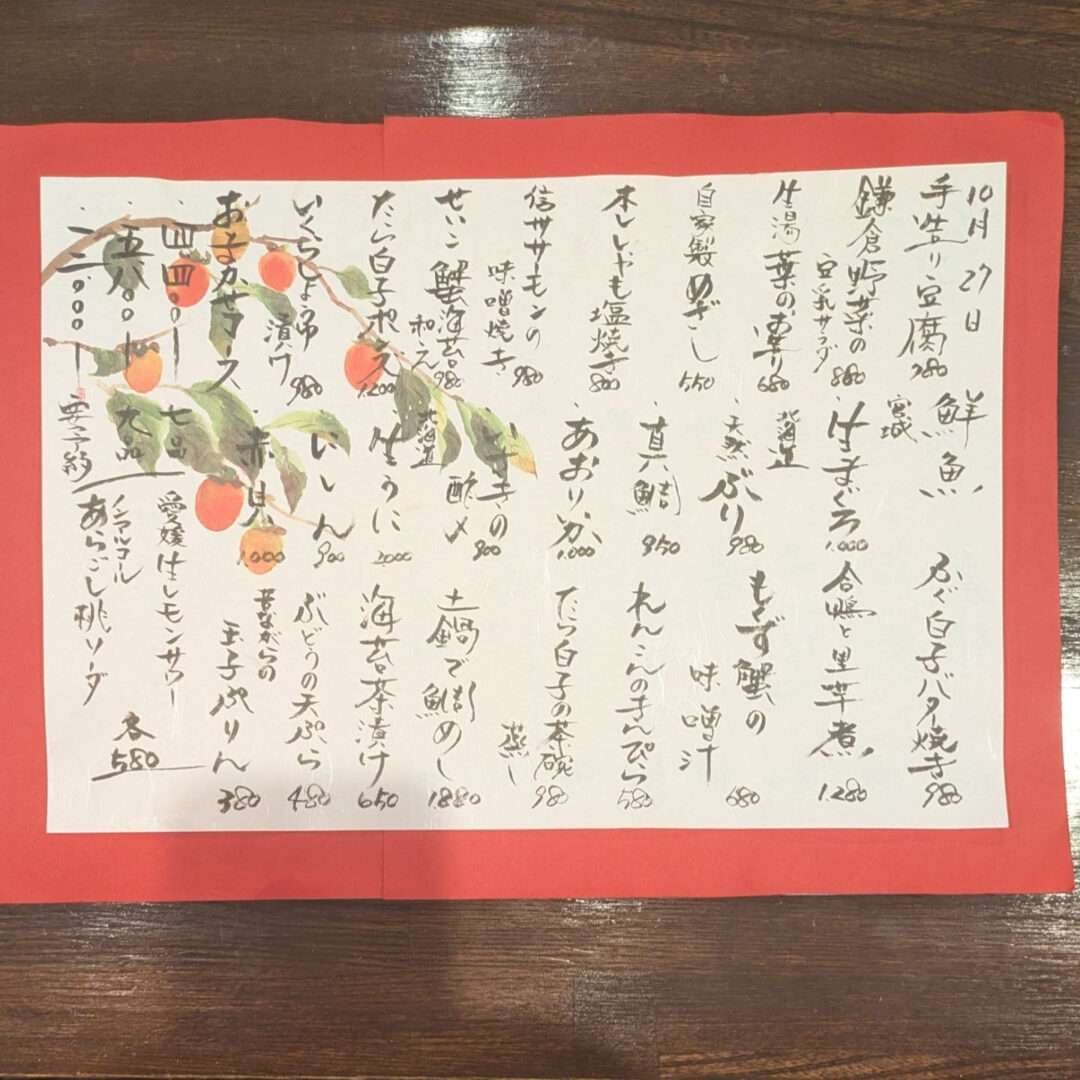 10月27日
手造り豆腐
380
鎌倉野菜の
豆乳サラダ
880
生湯葉のお造り
680
自家製めざし
550
本ししゃも塩焼き
800
信州サーモンの
味噌焼き
980
せいこ蟹海苔
和え
980
たら白子ポン酢
1.200
いくらしょうゆ
漬け
980
おまかせコース
・四四〇〇ー 七品
・五八〇〇ー 九品
要予約
鮮魚
宮城
・生まぐろ
1.000
北海道
・天然ぶり
980
・真鯛
950
・あおりいか
1.000
・いさきの
酢〆
900
北海道
・生うに
2000
・いわし
900
・赤貝
1.000
ふぐ白子バター焼き
980
合鴨と里芋煮
1.280
もくず蟹の
味噌汁
680
れんこんのきんぴら
580
たら白子の茶碗
蒸し
980
土鍋で鯛めし
1880
海苔茶漬け
650
ぶどうの天ぷら
480
昔ながらの
玉子ぷりん
380
愛媛生レモンサワー
ノンアルコール
あらごし桃ソーダ
各
580